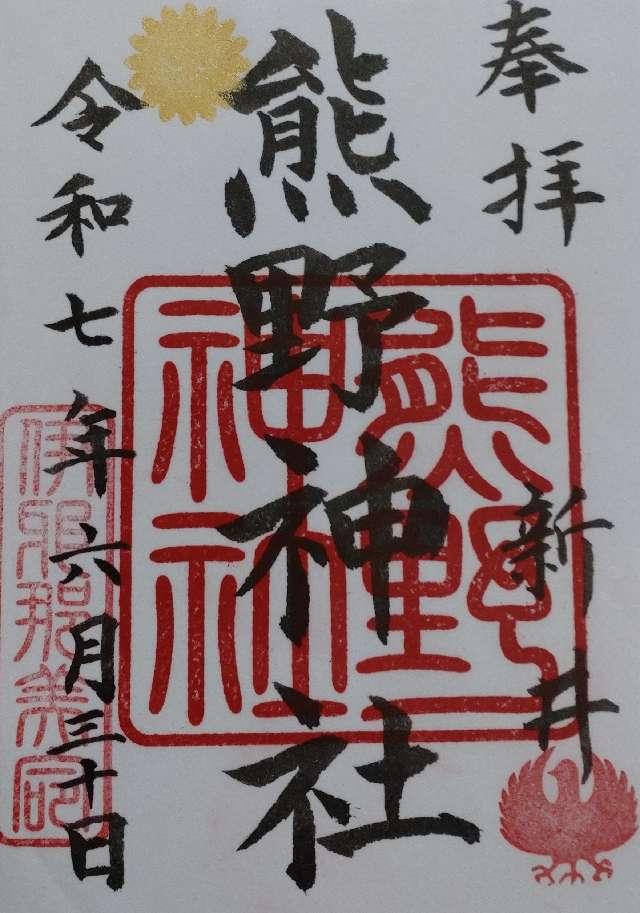 奉拝
新井
熊野神社
令和七年六月三十日
熊野神社